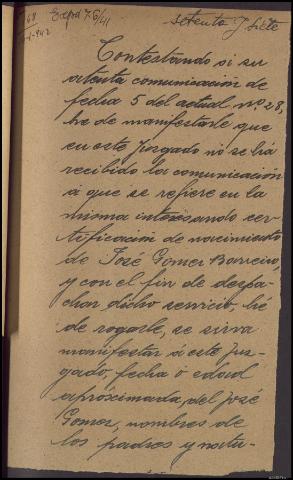 68 Exped 76/41 setenta y siete
-1-942
Contestando á su
atenta comunicación de
fecha 5 del actual nº 28,
he de manifestarle que
en este Juzgado no se há
recibido la comunicación
á que se refiere en la
misma interesando cer-
tificación de nacimiento
de José Gomez Barreiro,
y con el fin de despa-
char dicho servicio, hé
de rogarle, se sirva
manifestar á este Juz-
gado, fecha ó edad
apróximada, del José
Gomez, nombres de
los padres y natu-